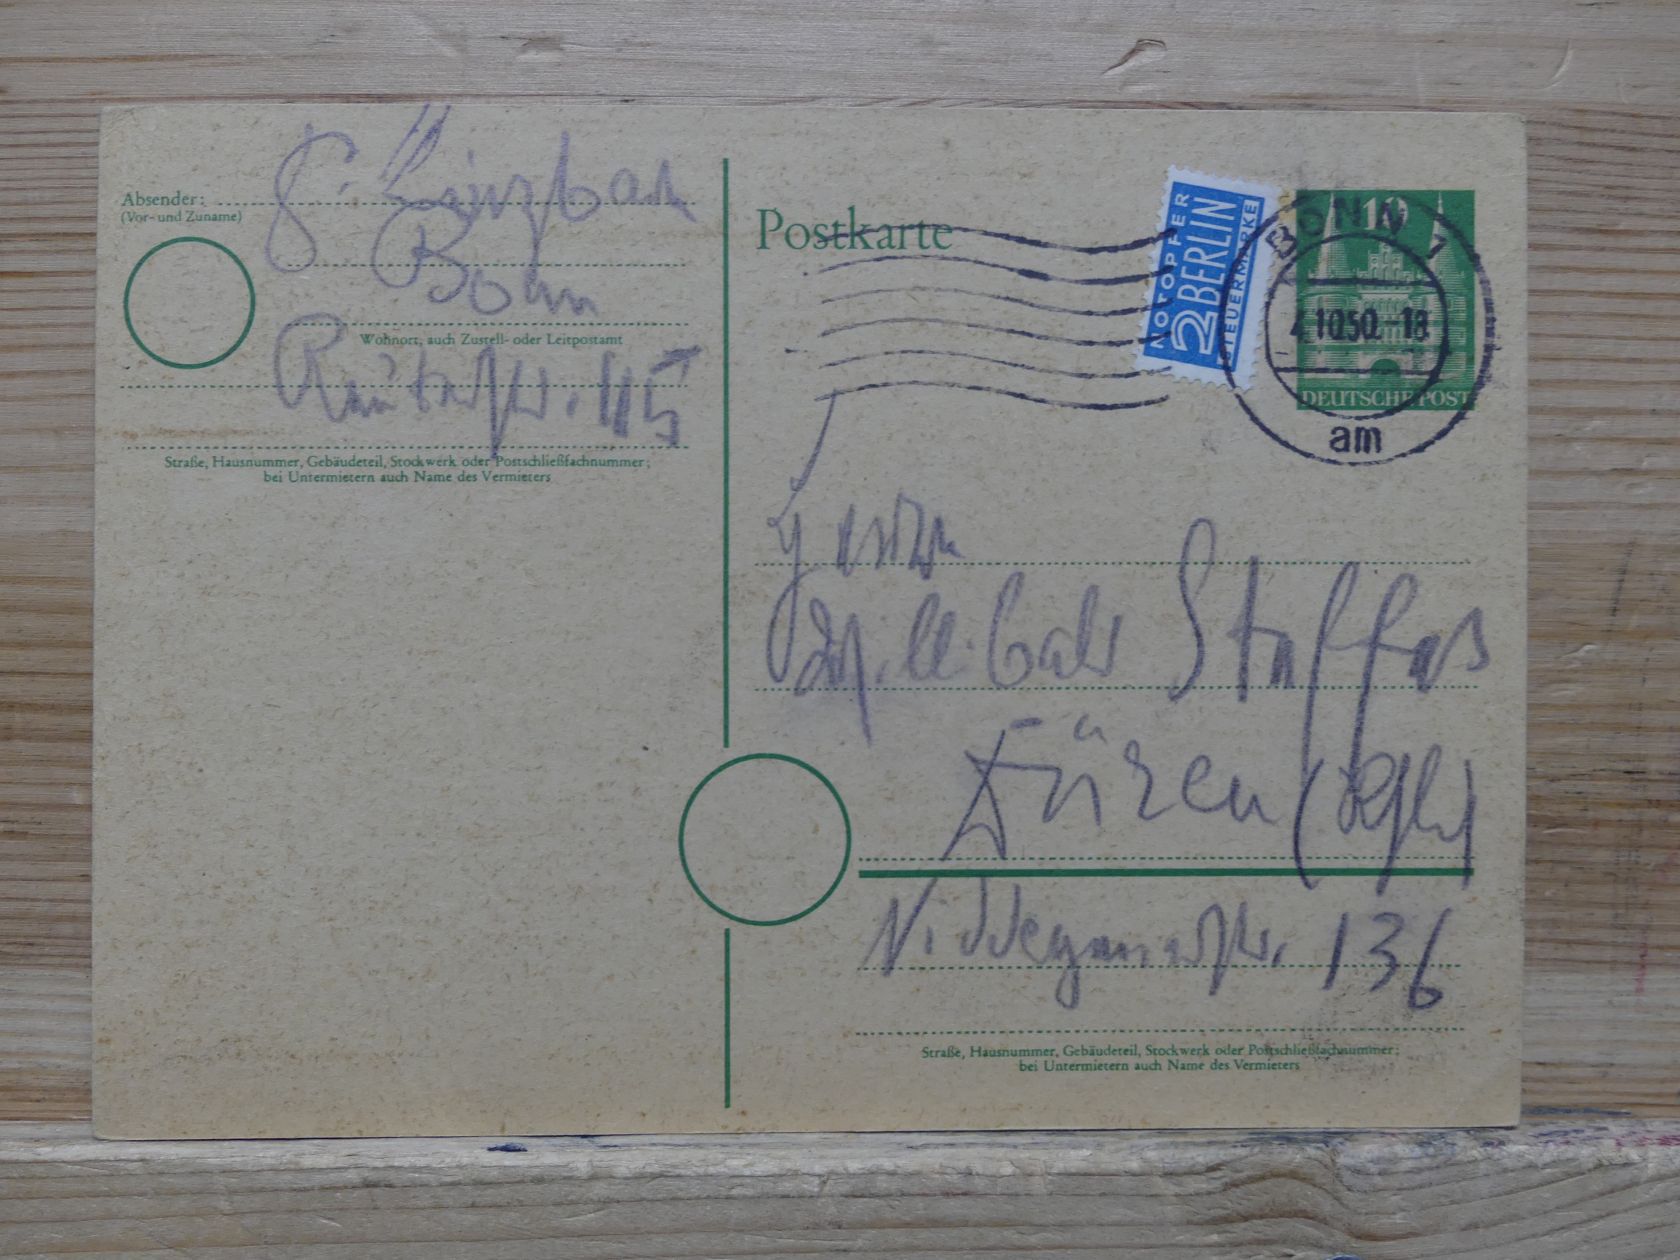 Absender:
(Vor- und Zuname)
Bonn
Wohnort, auch Zustell- oder Leitpostamt
Reuterstr. 45
Straße, Hausnummer, Gebäudeteil, Stockwerk oder Postschließfachnummer;
bei Untermietern auch Name des Vermieters
Postkarte
NOTOPFER
2 BERLIN
STEUERMARKE
10
DEUTSCHE POST
BONN 1
4.10.50.-18
am
Herrn
Düren
Niddeggenerstr. 136
Straße, Hausnummer, Gebäudeteil, Stockwerk oder Postschließfachnummer;
bei Untermietern auch Name des Vermieters